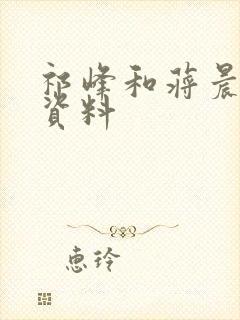 祁峰和蒋晨
资料
惠玲